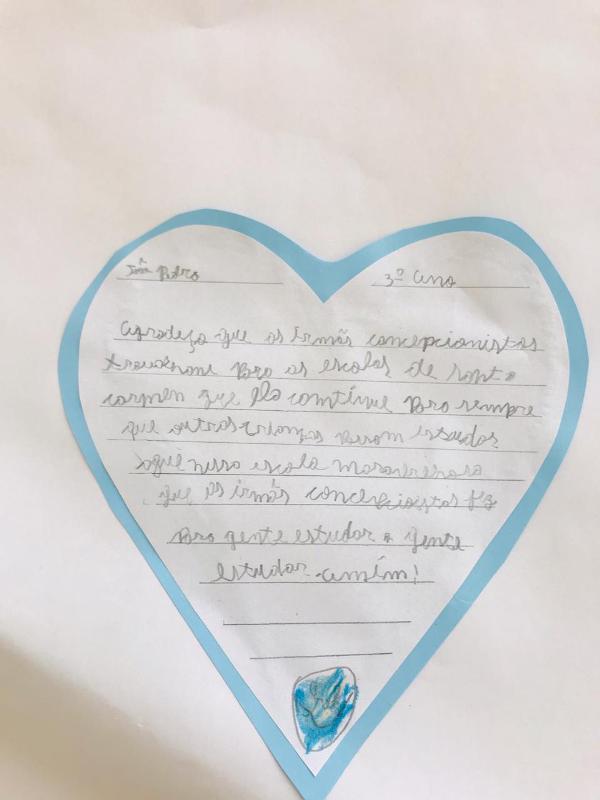 João Pedro
3º ano
agradeço que as irmãs concepcionistas
pra as escolas de
carmen que ela comtinue pra sempre
que outras crianças estudos
aque nessa escola
que as irmãs concepcionistas fez
pra gente estudar a gente
estudar amém!